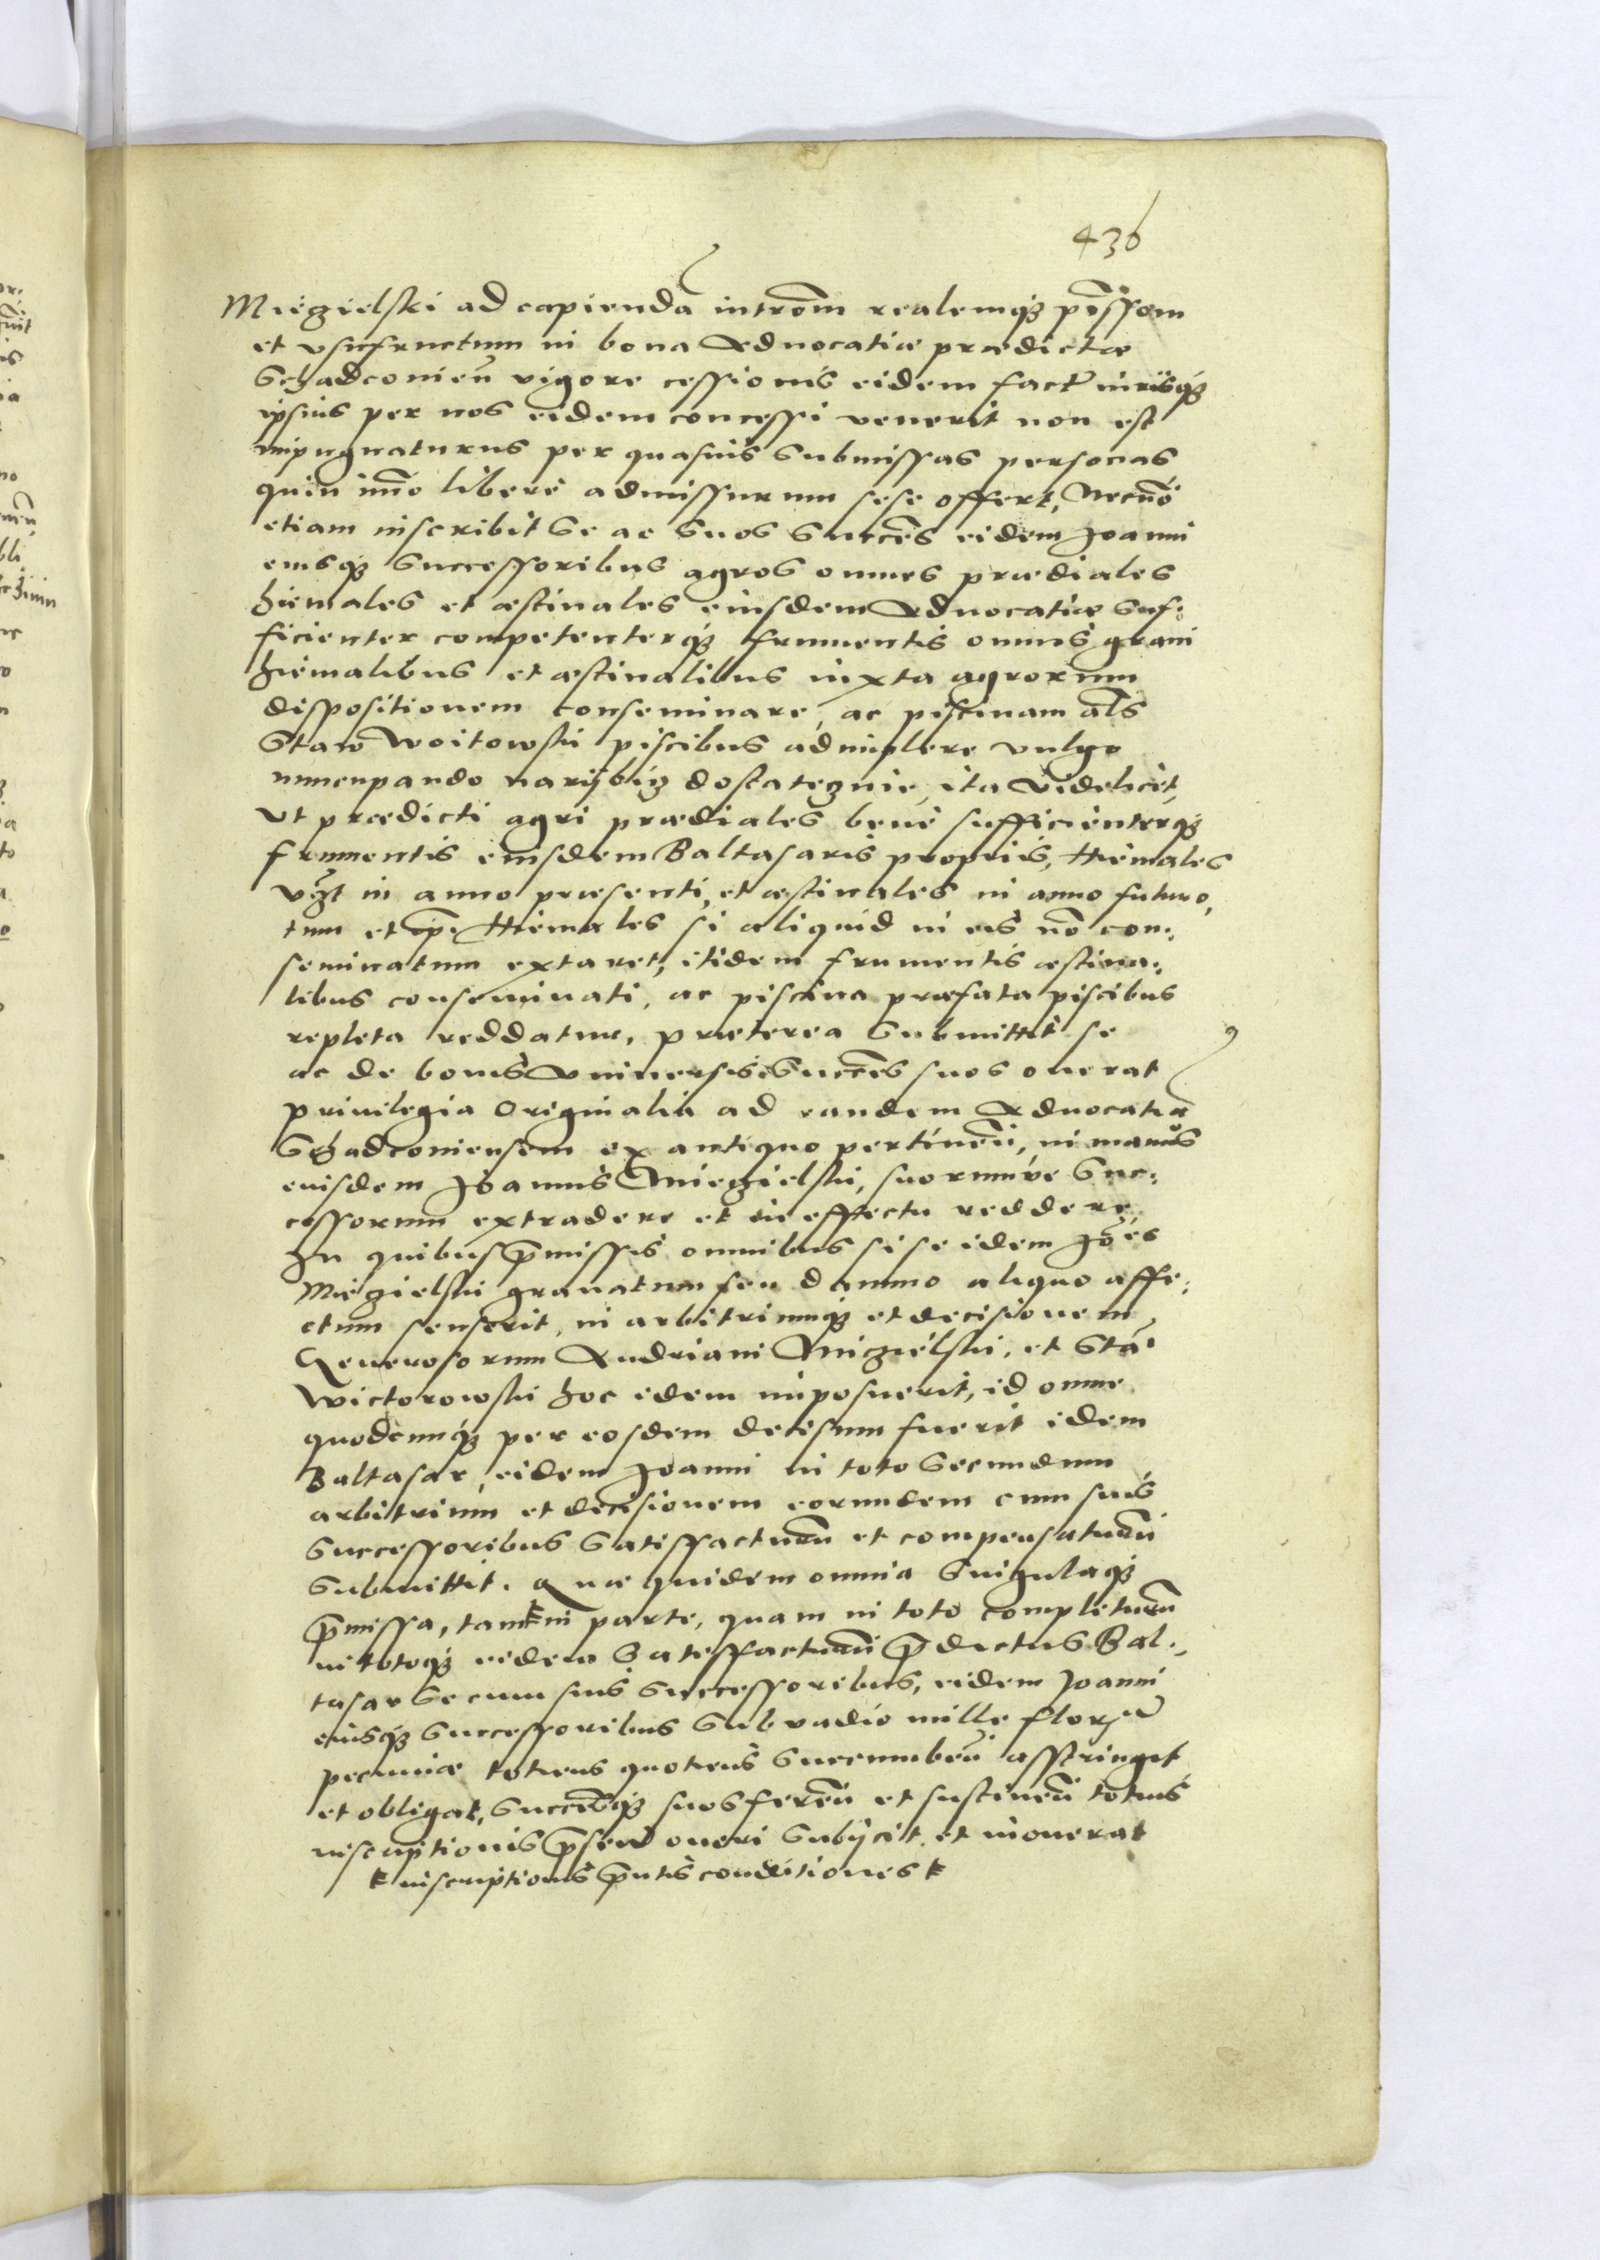 436
Miegzielski ad capienda introm realemq₃ possom
et vsufructum in bona Aduocatiæ prædictæ
Schadconien vigore cessionis eidem fact iurisq₃
ipsius per nos eidem concessi venerit non est
impugnaturus per quasuis Submissas personas
quin imo liberè admissurum sese offert, Necno
etiam inscribit Se ac Suos Succes eidem Joanni
eiusq₃ Successoribus agros omnes prædiales
hiemales et æstiuales eiusdem Aduocatiæ Suf:
ficienter competenterq₃ frumentis omnis grani
hiemalibus et æstiualibus iuxta agrorum
dispositionem conseminare, ac piscinam als
Staw Woitowski piscibus adimplere vulgo
nuncupando narijbig dostatęznie, ita Videlicet,
Vt prædicti agri prædiales benè sufficienterq₃
frumentis eiusdem Baltasaris propriis, Hiemales
vzt in anno præsenti, et æstiuales in anno futuro,
tum et ipi Hiemales si aliquid in eis no con:
seminatum extaret, itidem frumentis æstiua:
libus conseminati, ac piscina præfata piscibus
repleta reddatur, præterea Submittit se
ac de bonis Vniuersis Succes suos onerat
priuilegia Originalia ad eandem Aduocatia
Schadconiensem ex antiquo pertinen, in manus
eiusdem Joannis Miegzielski, suorumue Suc:
cessorum extradere et in effectu reddere
In quibus pmissis omnibus si se idem Joes
Miegzielski grauatum seu damno aliquo affe:
ctum senserit, in arbitriumq₃ et decisionem
Generosorum Andriani Miegzielski, et Sta
Wictorowski hoc idem imposuerit, id omne
quodcunq₃ per eosdem decisum fuerit idem
Baltasar, eidem Joanni in toto Secundum
arbitrium et decisionem eorundem cum suis
Successoribus Satisfacturu et compensaturu
Submittit. Quæ quidem omnia Singulaq₃
pmissa, tam in parte, quam in toto completuru
in totoq₃ eidem Satisfacturu pdictus Bal:
tasar Secum suis Successoribus, eidem Joanni
eiusq₃ Successoribus Sub vadio mille flor
pecuniæ totiens quotiens Succumben asstringit
et obligat, Succesq₃ suos feren et sustinen totius
inscriptionis psen oneri Subijcit et inonerat
inscriptionis pntis conditiones